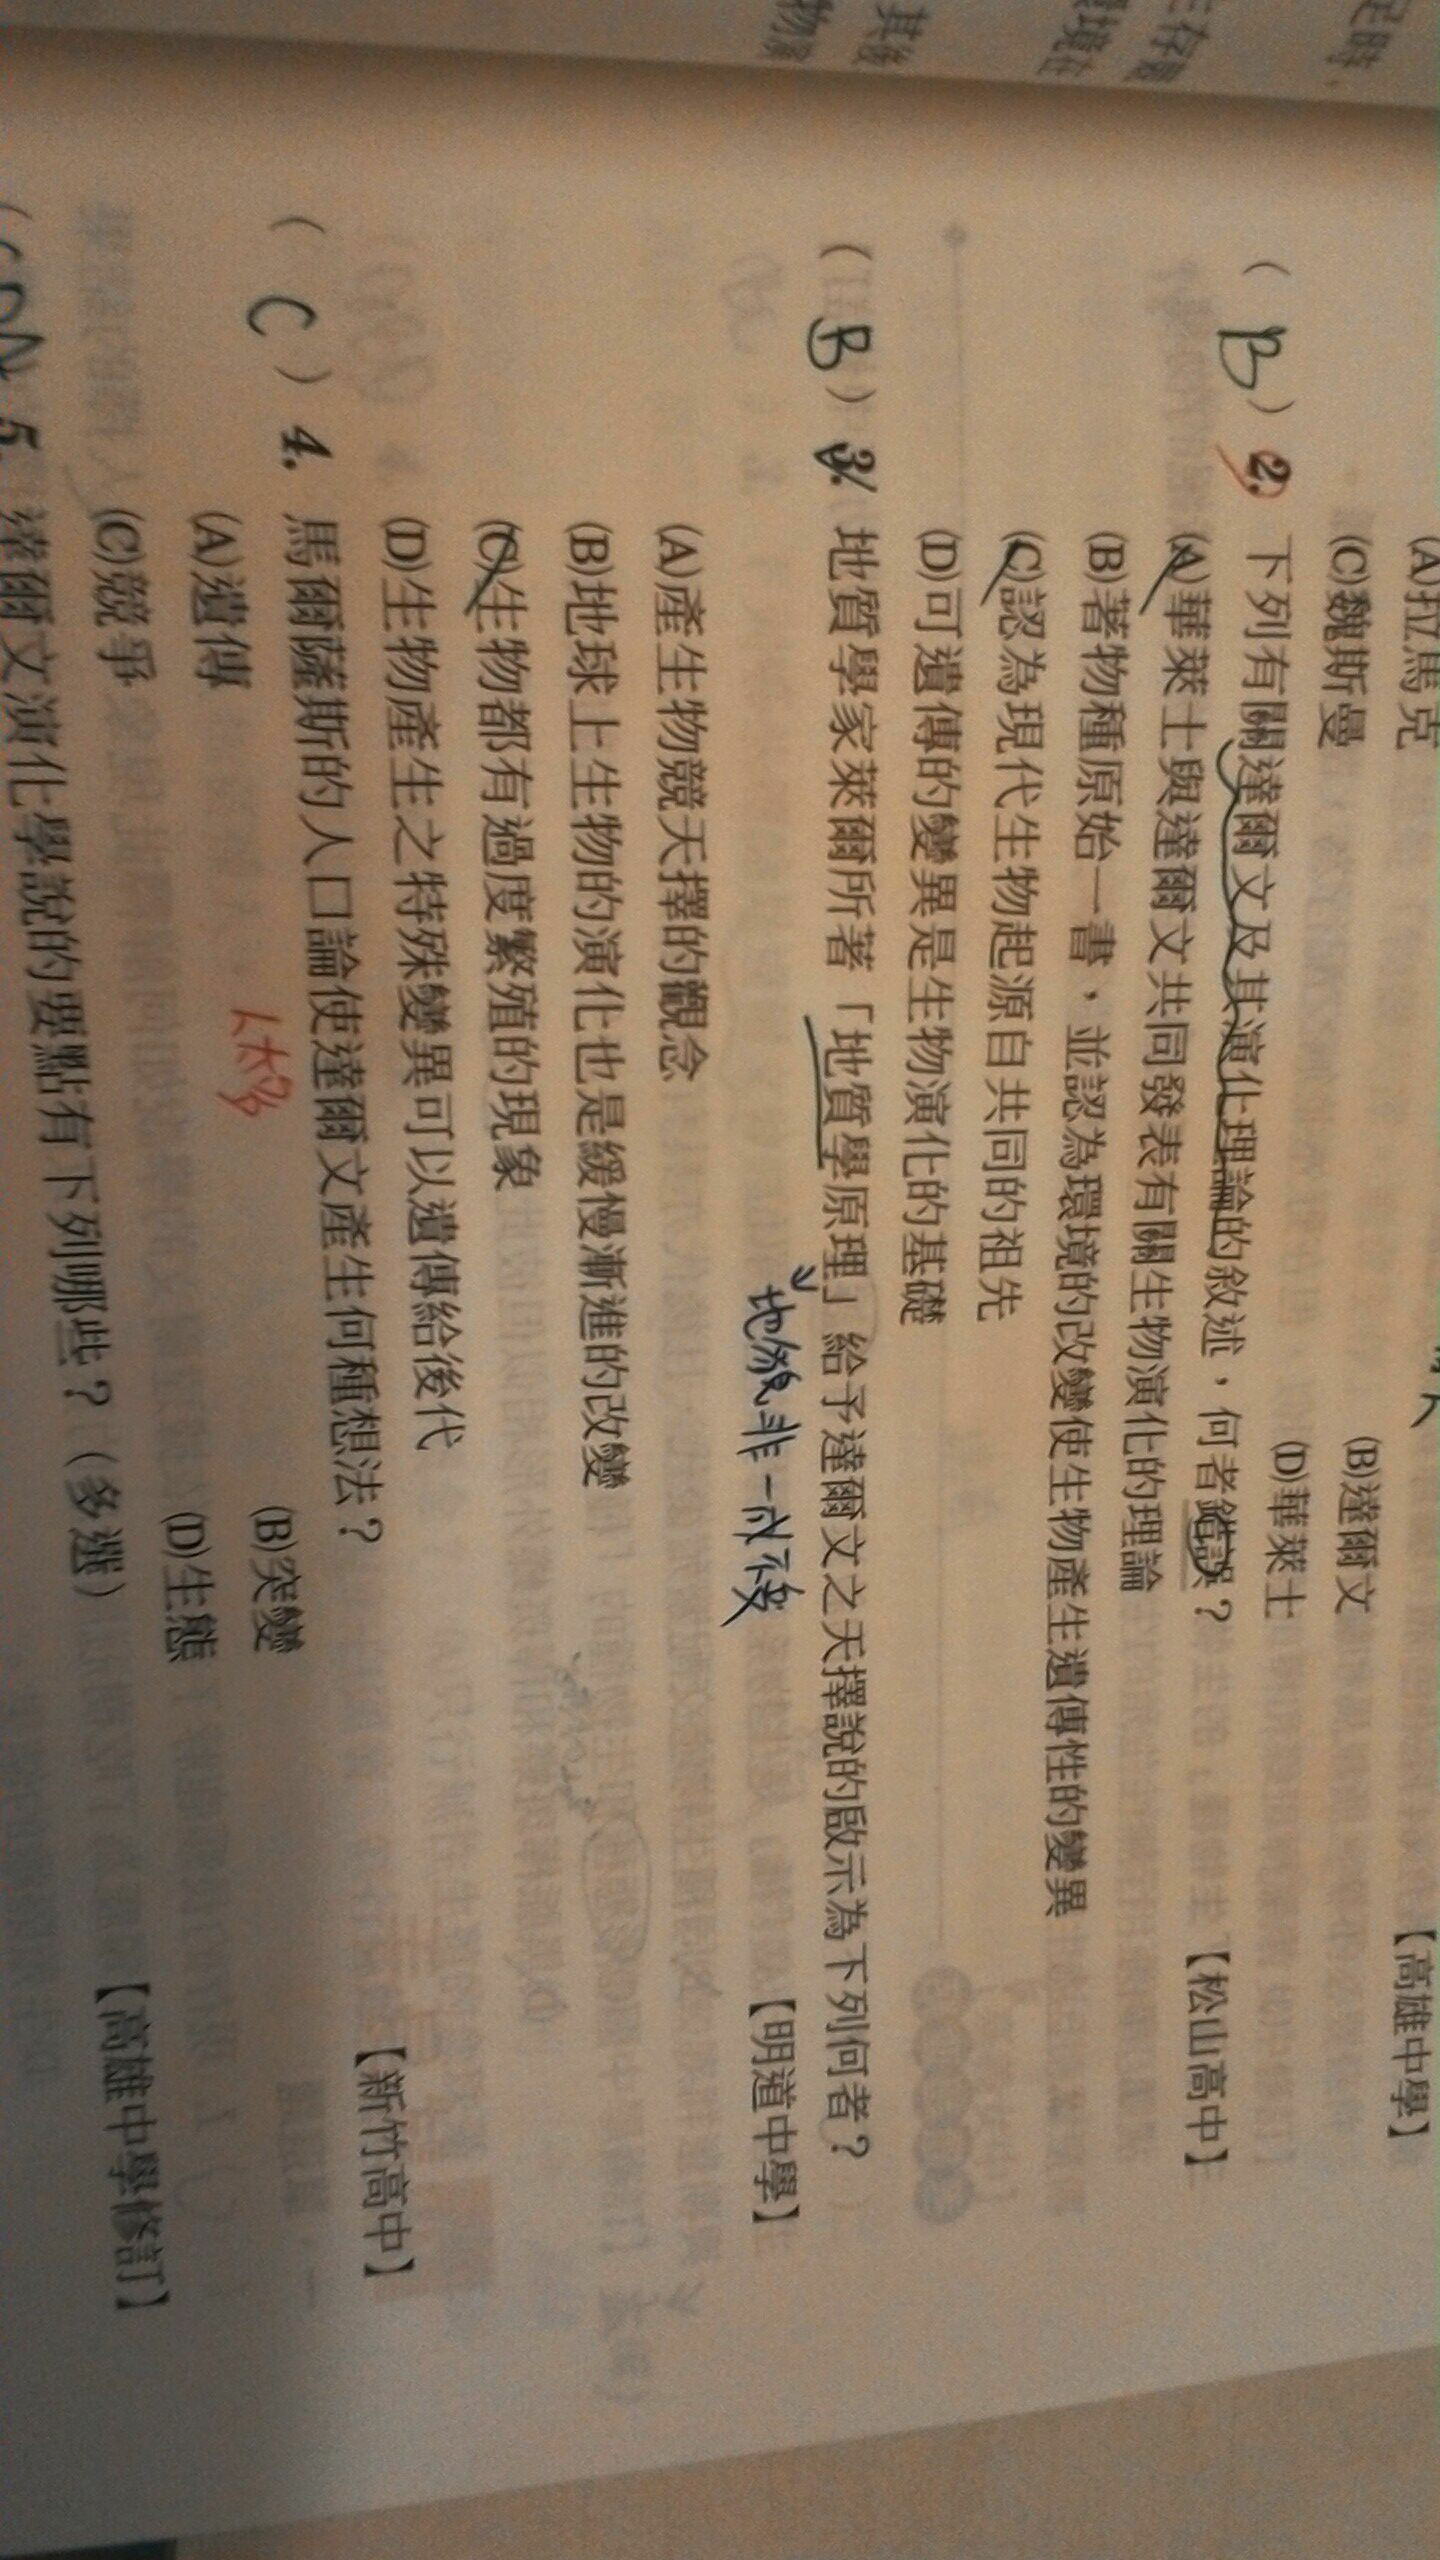 (A)拉馬克
(B)達爾文
(C)魏斯曼
(D)華萊士
【高雄中學】
( B ) 2. 下列有關達爾文及其演化理論的敘述，何者錯誤？
【松山高中】
(A)華萊士與達爾文共同發表有關生物演化的理論
(B)著物種原始一書，並認為環境的改變使生物產生遺傳性的變異
(C)認為現代生物起源自共同的祖先
(D)可遺傳的變異是生物演化的基礎
( B ) 3. 地質學家萊爾所著「地質學原理」給予達爾文之天擇說的啟示為下列何者？
地貌非一成不變
【明道中學】
(A)產生物競天擇的觀念
(B)地球上生物的演化也是緩慢漸進的改變
(C)生物都有過度繁殖的現象
(D)生物產生之特殊變異可以遺傳給後代
( C ) 4. 馬爾薩斯的人口論使達爾文產生何種想法？
【新竹高中】
人太多
(A)遺傳
(B)突變
(C)競爭
(D)生態
5. 達爾文演化學說的要點有下列哪些？（多選）
【高雄中學修訂】